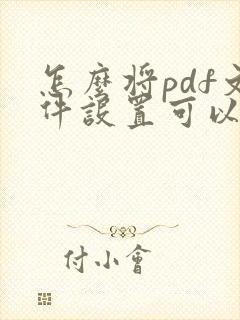 怎麽将pdf文
件設置可以
付小會